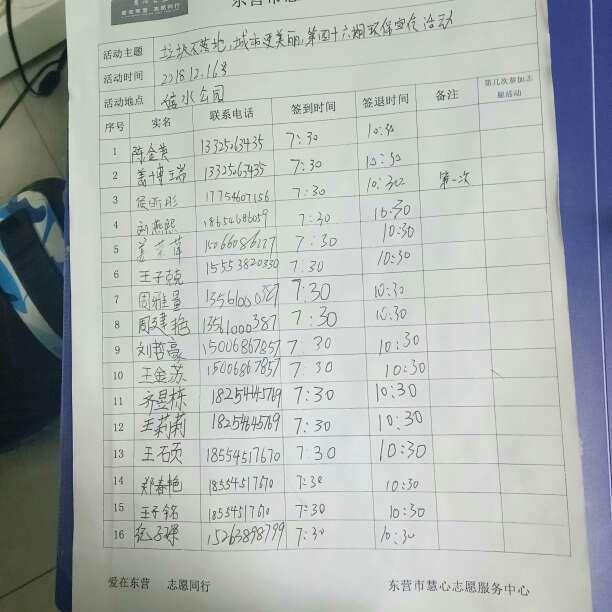 爱在东营 志愿同行
东营市慧心志愿
活动主题 垃圾不落地,城市更美丽,第四十六期环保宣传活动
活动时间 2018.12.16号
活动地点 公园
序号 实名 联系电话 签到时间 签退时间 备注 第几次参加志愿活动
1 陈金黄 13325063435 7:30 10:30
2 博瑞 13325063435 7:30 10:30
3 17754607156 7:30 10:30 第一次
4 刘燕熙 18654686059 7:30 10:30
5 15066086127 7:30 10:30
6 王子克 15553820330 7:30 10:30
7 周雅量 13561000387 7:30 10:30
8 周建艳 13561000387 7:30 10:30
9 刘哲豪 15006867857 7:30 10:30
10 王金芬 15006867857 7:30 10:30
11 齐昱栋 18254645769 7:30 10:30
12 王莉莉 18254645769 7:30 10:30
13 王石页 18554517670 7:30 10:30
14 郑春艳 18554517670 7:30 10:30
15 王子铭 18554517670 7:30 10:30
16 15263898799 7:30 10:30
爱在东营 志愿同行 东营市慧心志愿服务中心